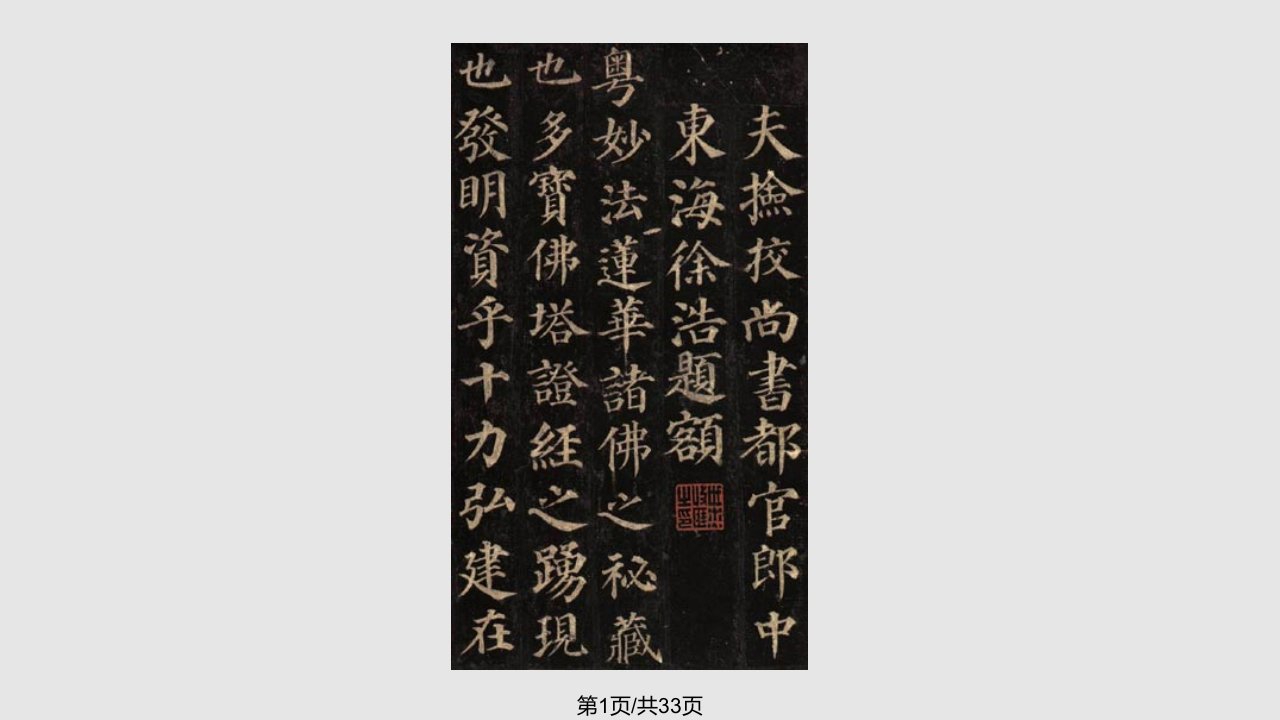 夫撿挍尚書都官郎中
東海徐浩題額
粵妙法蓮華諸佛之祕藏
也多寶佛塔證経之踴現
也發明資乎十力弘建在
第1页/共33页